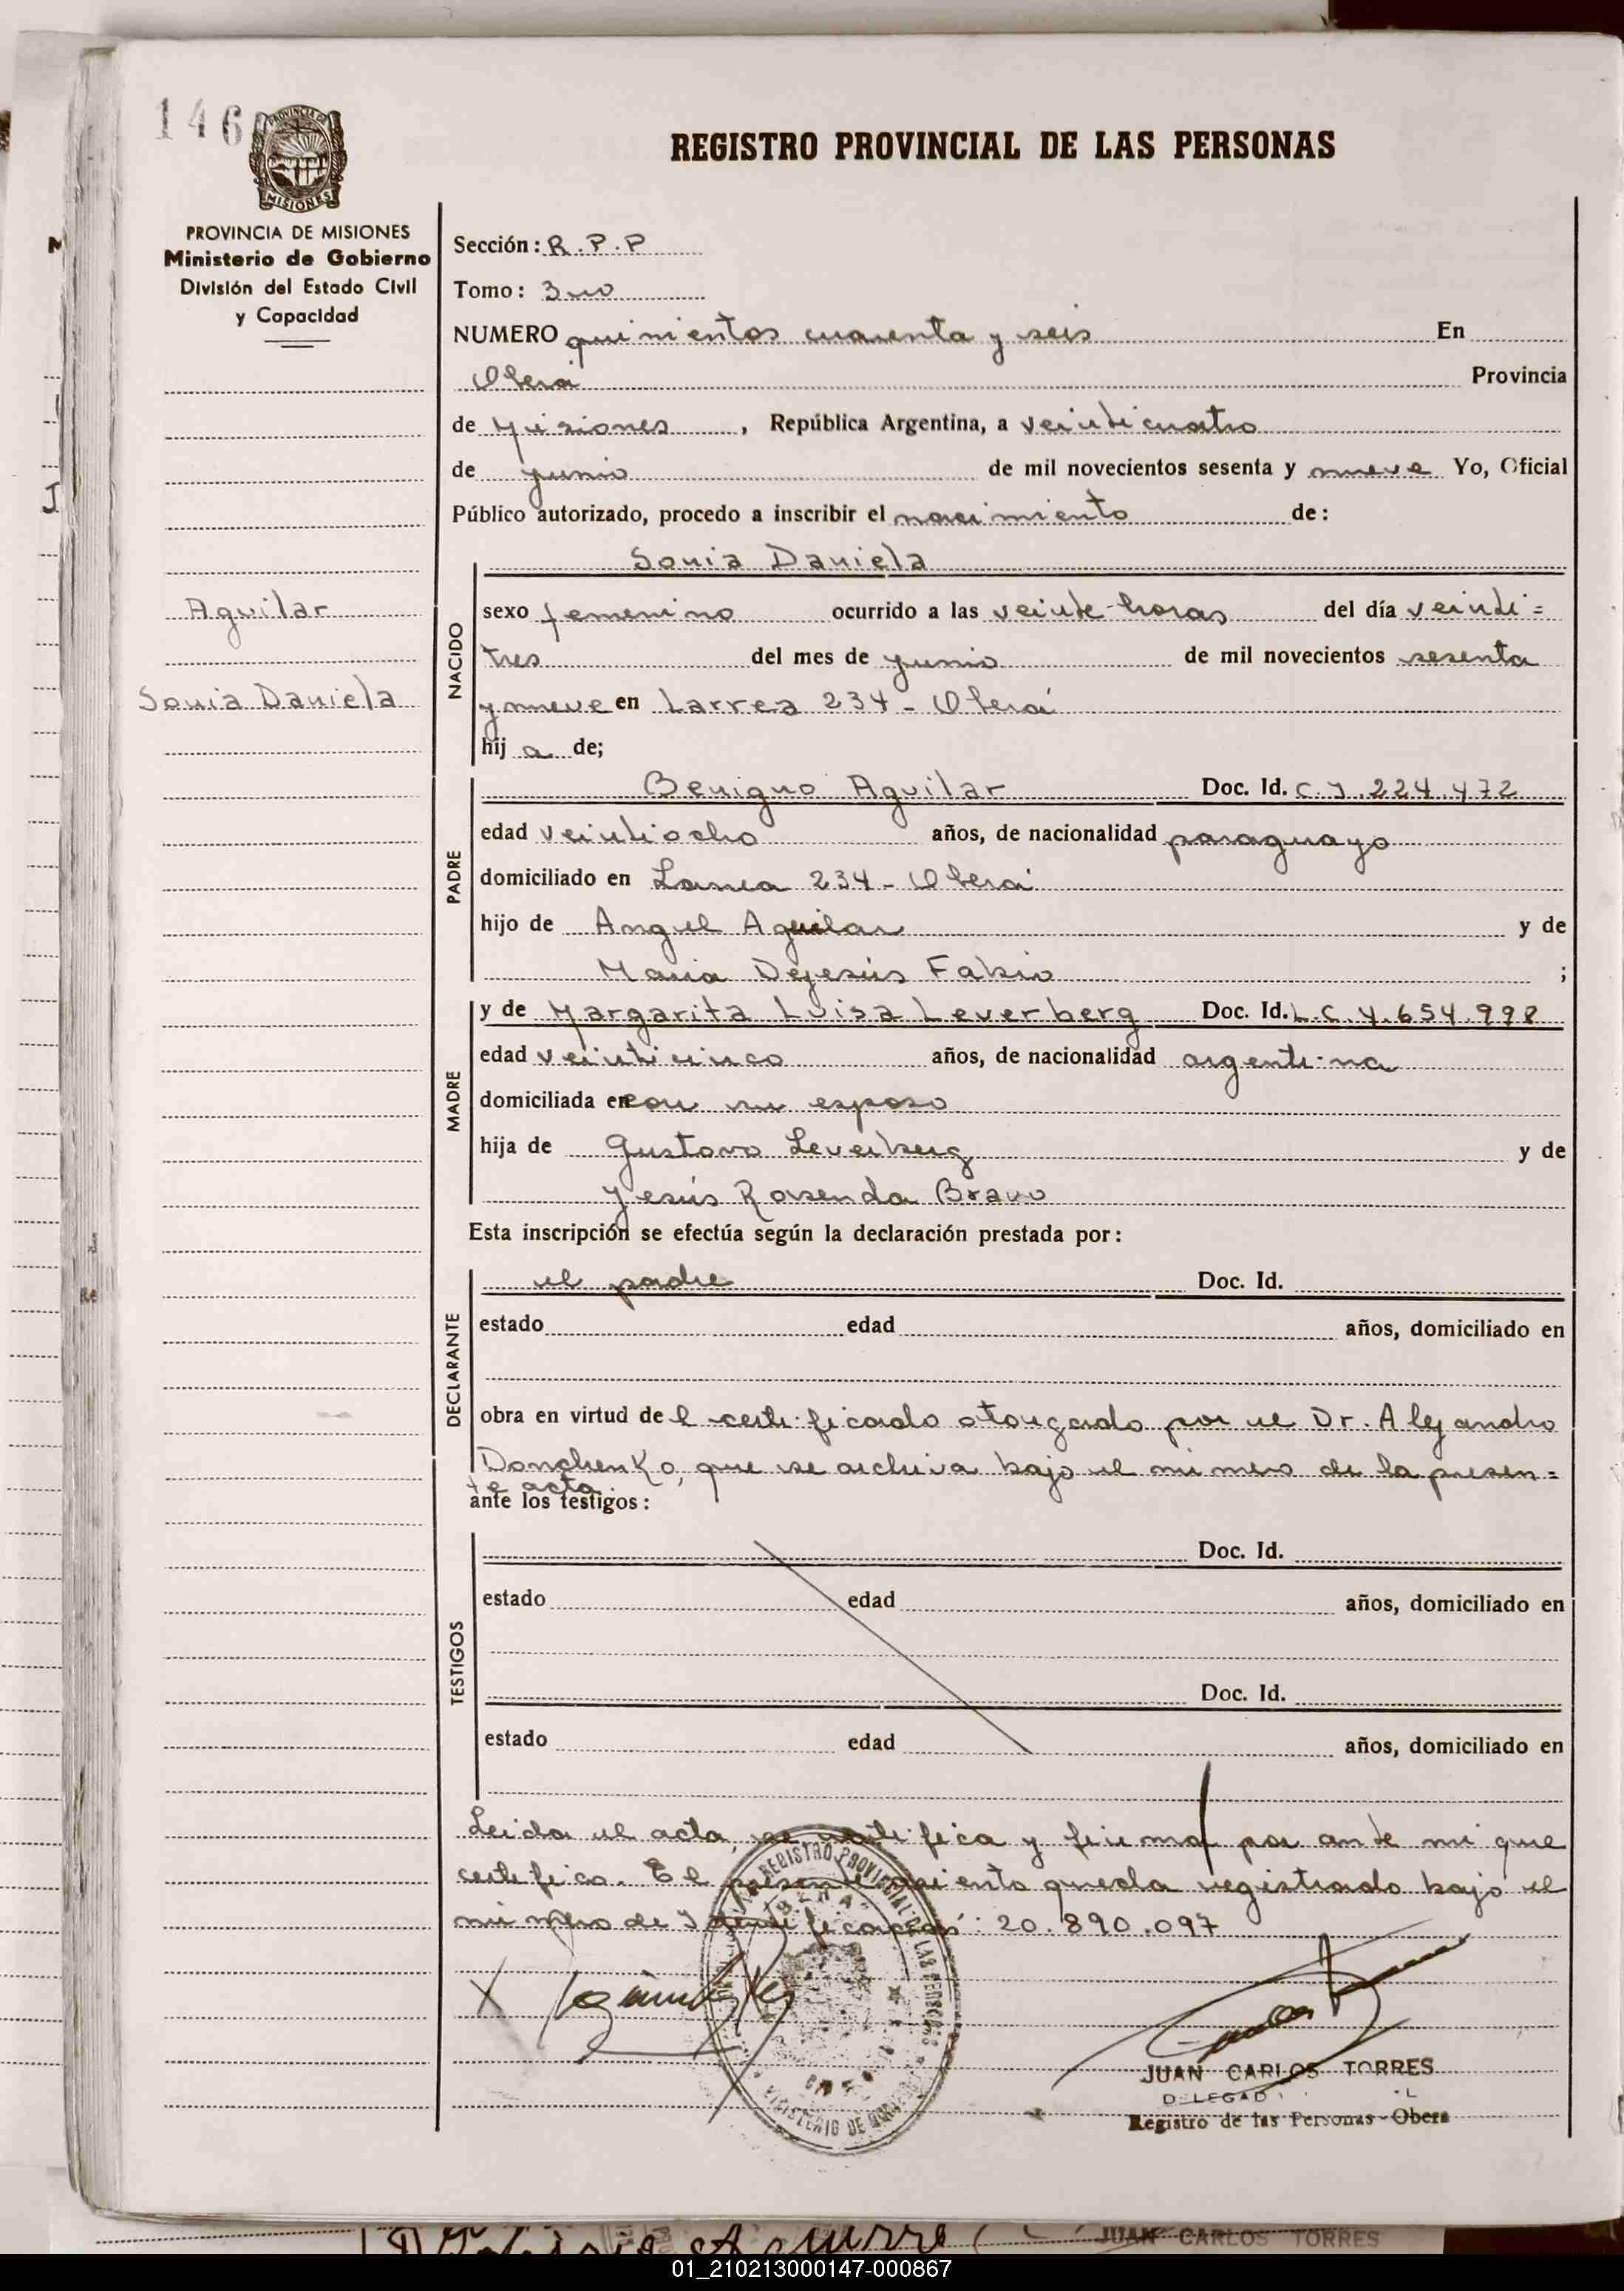 146
PROVINCIA DE
MISIONES
REGISTRO PROVINCIAL DE LAS PERSONAS
PROVINCIA DE MISIONES
Ministerio de Gobierno
División del Estado Civil
y Capacidad
Sección: R.P.P
Tomo: 3ro
NUMERO quinientos cuarenta y seis En
Oberá Provincia
de Misiones, República Argentina, a veinticuatro
de junio de mil novecientos sesenta y nueve Yo, Oficial
Público autorizado, procedo a inscribir el nacimiento de:
Sonia Daniela
Aguilar
Sonia Daniela
NACIDO
sexo femenino ocurrido a las veinte horas del día veinti=
tres del mes de junio de mil novecientos sesenta
y nueve en Larrea 234 - Oberá
hij a de;
PADRE
Benigno Aguilar Doc. Id. C.I. 224.472
edad veintiocho años, de nacionalidad paraguayo
domiciliado en Larrea 234 - Oberá
hijo de Angel Aguilar y de
Maria Dejesús Fabio ;
MADRE
y de Margarita Luisa Leverberg Doc. Id. L.C. 4.654.998
edad veinticinco años, de nacionalidad argentina
domiciliada en con su esposo
hija de Gustavo Leverberg y de
Jesús Rosenda Bravo
Esta inscripción se efectúa según la declaración prestada por:
DECLARANTE
el padre Doc. Id.
estado edad años, domiciliado en
obra en virtud de l certificado otorgado por el Dr. Alejandro
Donchenko, que se archiva bajo el número de la presen=
te acta
ante los testigos:
TESTIGOS
Doc. Id.
estado edad años, domiciliado en
Doc. Id.
estado edad años, domiciliado en
Leida el acta, se ratifica y firma por ante mi que
certifico. El presente nacimiento queda registrado bajo el
número de Identificación: 20.890.097
REGISTRO PROVINCIAL DE LAS PERSONAS
OBERA
MINISTERIO DE GOBIERNO
JUAN CARLOS TORRES
Registro de las Personas - Obera
JUAN CARLOS TORRES
01_210213000147-000867